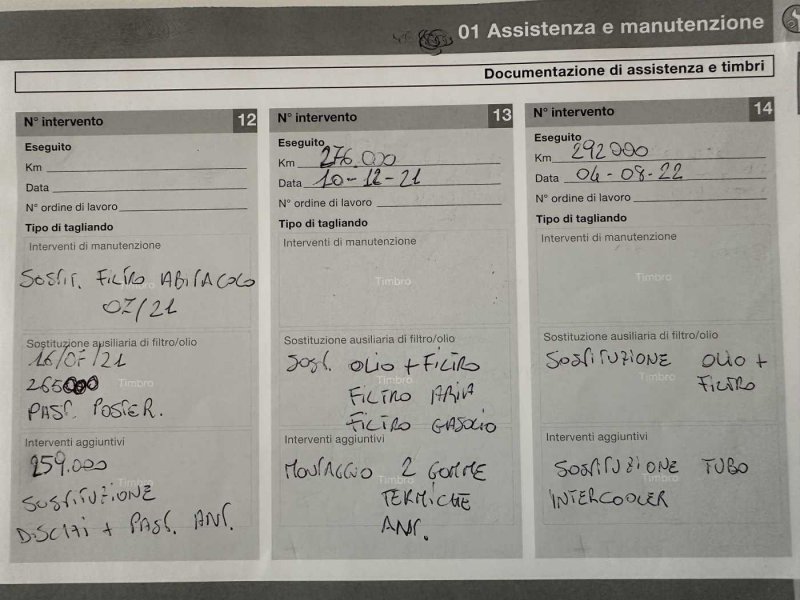 01 Assistenza e manutenzione
Documentazione di assistenza e timbri
N° intervento 12
Eseguito
Km
Data
N° ordine di lavoro
Tipo di tagliando
Interventi di manutenzione
Timbro
SOSTIT. FILTRO ABITACOLO
07/21
Sostituzione ausiliaria di filtro/olio
16/07/21
Timbro
265000
PAST. POSTER.
Interventi aggiuntivi
259.000
Timbro
SOSTITUZIONE
DISCHI + PAST. ANT.
N° intervento 13
Eseguito
Km 276.000
Data 10-12-21
N° ordine di lavoro
Tipo di tagliando
Interventi di manutenzione
Timbro
Sostituzione ausiliaria di filtro/olio
SOST. OLIO + FILTRO
Timbro
FILTRO ARIA
FILTRO GASOLIO
Interventi aggiuntivi
MONTAGGIO 2 GOMME
Timbro
TERMICHE
ANT.
N° intervento 14
Eseguito
Km 292000
Data 04-08-22
N° ordine di lavoro
Tipo di tagliando
Interventi di manutenzione
Timbro
Sostituzione ausiliaria di filtro/olio
SOSTITUZIONE OLIO +
Timbro
FILTRO
Interventi aggiuntivi
SOSTITUZIONE TUBO
Timbro
INTERCOOLER